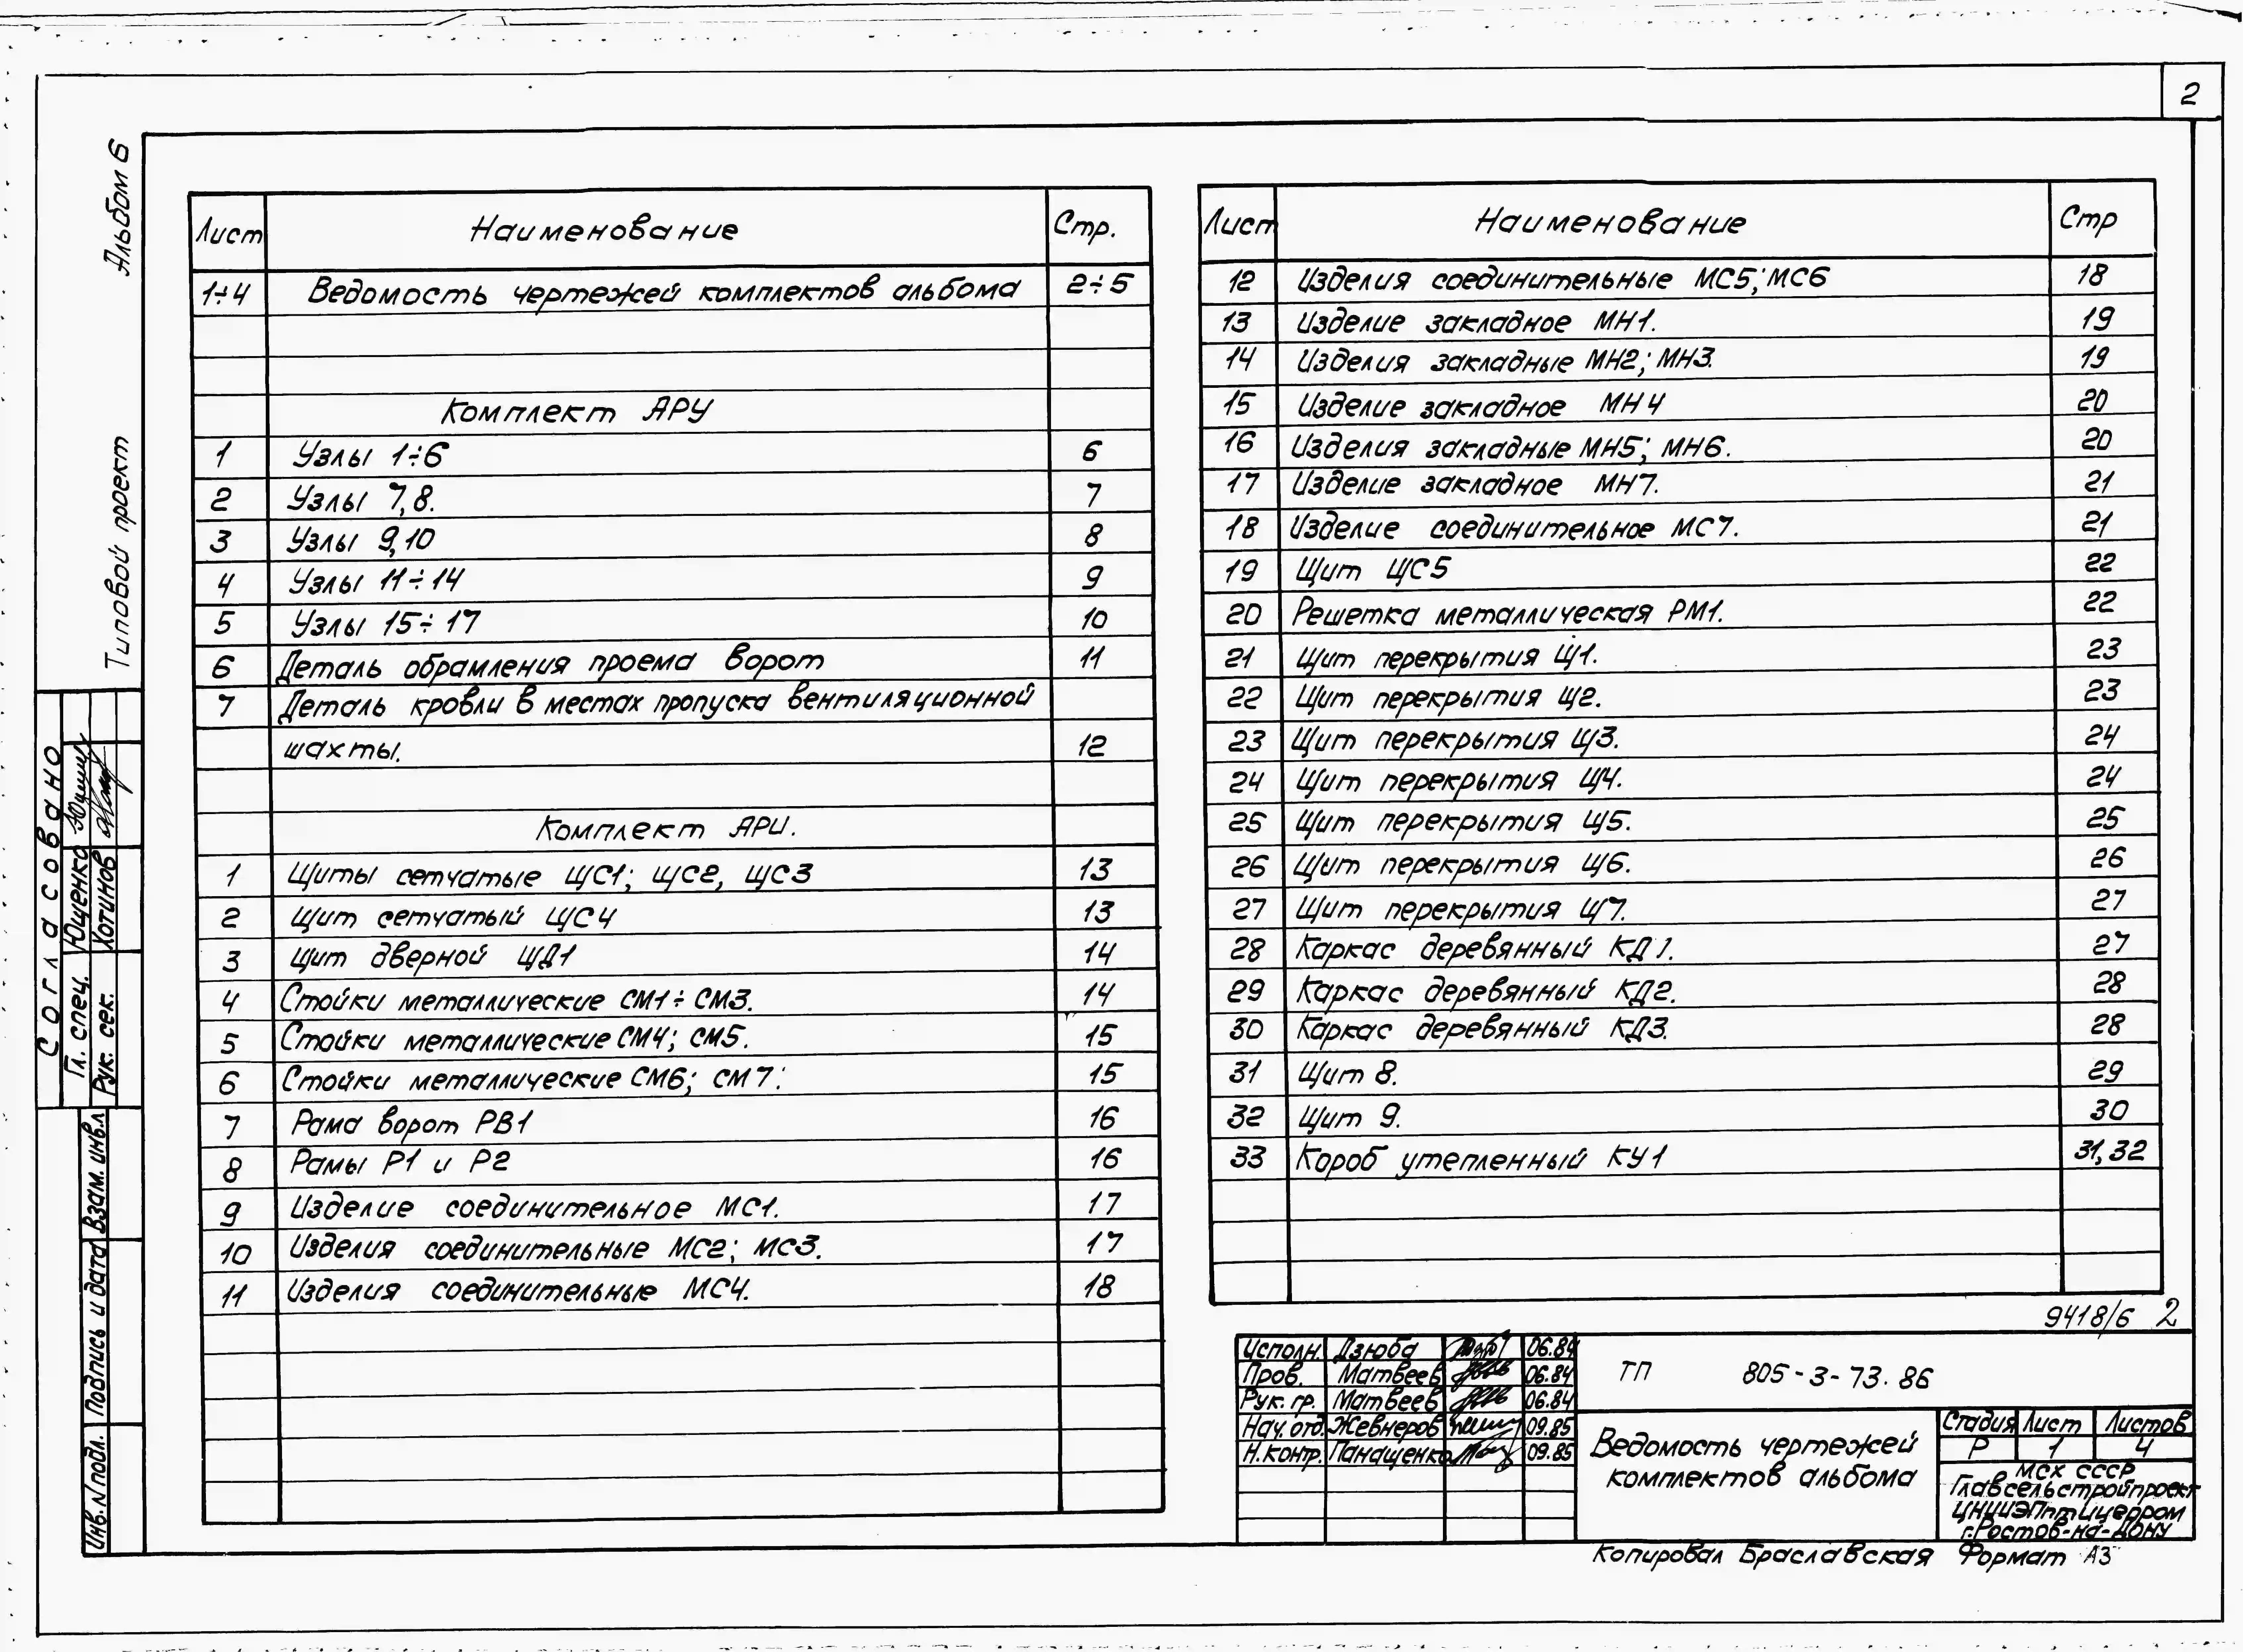 2
Альбом 6
Типовой проект
Лист Наименование Стр.
1÷4 Ведомость чертежей комплектов альбома 2÷5
Комплект АРУ
1 Узлы 1÷6 6
2 Узлы 7,8. 7
3 Узлы 9,10 8
4 Узлы 11÷14 9
5 Узлы 15÷17 10
6 Деталь обрамления проема ворот 11
7 Деталь кровли в местах пропуска вентиляционной
шахты. 12
Комплект АРИ.
1 Щиты сетчатые ЩС1; ЩС2, ЩС3 13
2 Щит сетчатый ЩС4 13
3 Щит дверной ЩД1 14
4 Стойки металлические СМ1÷СМ3. 14
5 Стойки металлические СМ4; СМ5. 15
6 Стойки металлические СМ6; СМ7. 15
7 Рама ворот РВ1 16
8 Рамы Р1 и Р2 16
9 Изделие соединительное МС1. 17
10 Изделия соединительные МС2; МС3. 17
11 Изделия соединительные МС4. 18
Лист Наименование Стр
12 Изделия соединительные МС5; МС6 18
13 Изделие закладное МН1. 19
14 Изделия закладные МН2; МН3. 19
15 Изделие закладное МН4 20
16 Изделия закладные МН5; МН6. 20
17 Изделие закладное МН7. 21
18 Изделие соединительное МС7. 21
19 Щит ЩС5 22
20 Решетка металлическая РМ1. 22
21 Щит перекрытия Щ1. 23
22 Щит перекрытия Щ2. 23
23 Щит перекрытия Щ3. 24
24 Щит перекрытия Щ4. 24
25 Щит перекрытия Щ5. 25
26 Щит перекрытия Щ6. 26
27 Щит перекрытия Щ7. 27
28 Каркас деревянный КД1. 27
29 Каркас деревянный КД2. 28
30 Каркас деревянный КД3. 28
31 Щит 8. 29
32 Щит 9. 30
33 Короб утепленный КУ1 31,32
Согласовано
Гл. спец. Ющенко
Рук. сек. Хотинов
Взам. инв.
Подпись и дата
Инв. N подл.
9418/6 2
Исполн. Дзюба 06.84
Пров. Матвеев 06.84
Рук. гр. Матвеев 06.84
Нач. отд. Жевнеров 09.85
Н.контр. Панащенко 09.85
ТП 805-3-73.86
Ведомость чертежей
комплектов альбома
Стадия Лист Листов
Р 1 4
МСХ СССР
Главсельстройпроект
ЦНИИЭПптицепром
г.Ростов-на-Дону
Копировал Браславская Формат А3